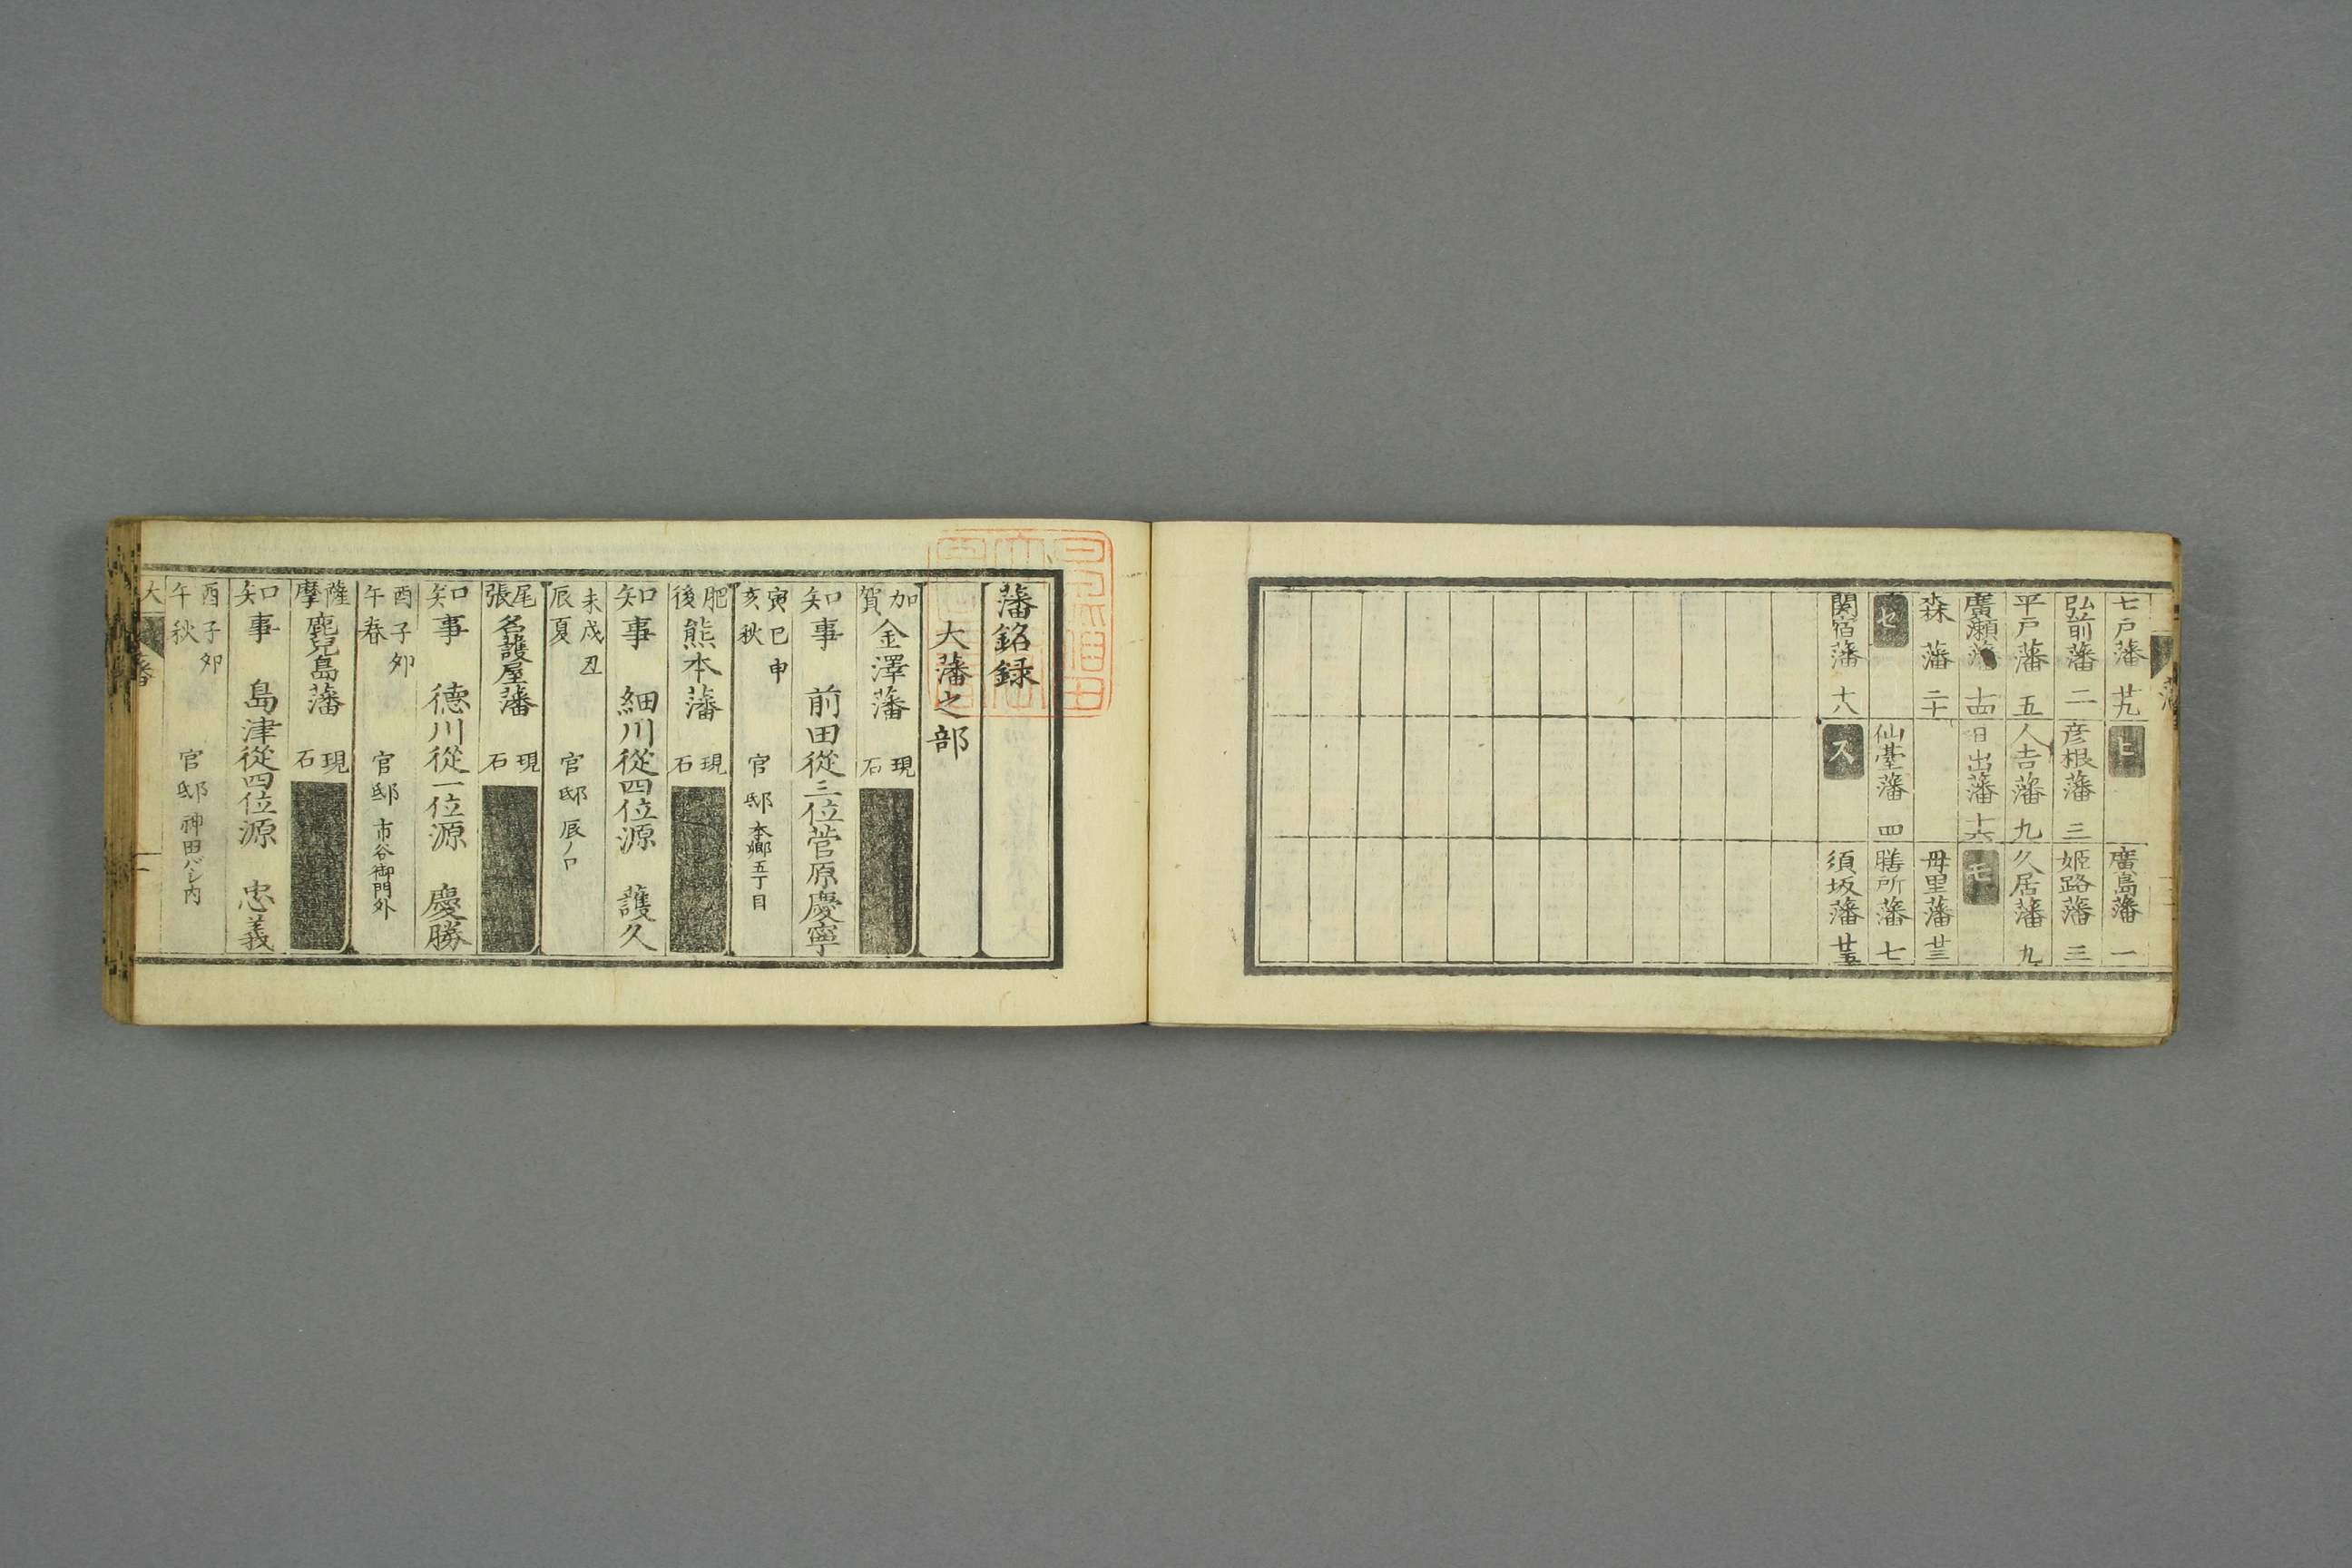 七戸藩 廿九
ヒ
廣島藩 一
弘前藩 二
彦根藩 三
姫路藩 三
平戸藩 五
人吉藩 九
久居藩 九
廣瀬藩 十四
日出藩 十六
モ
森藩 二十
母里藩 廿三
セ
仙臺藩 四
膳所藩 七
関宿藩 十八
ス
須坂藩 廿五
藩銘録
大藩之部
加賀 金澤藩 現石
知事 前田從三位菅原慶寧
寅巳申亥秋 官邸 本郷五丁目
肥後 熊本藩 現石
知事 細川從四位源 護久
未戌丑辰夏 官邸 辰ノ口
尾張 名護屋藩 現石
知事 徳川從一位源 慶勝
酉子夘午春 官邸 市谷御門外
薩摩 鹿兒島藩 現石
知事 島津從四位源 忠義
酉子夘午秋 官邸 神田バシ内
大 藩 一